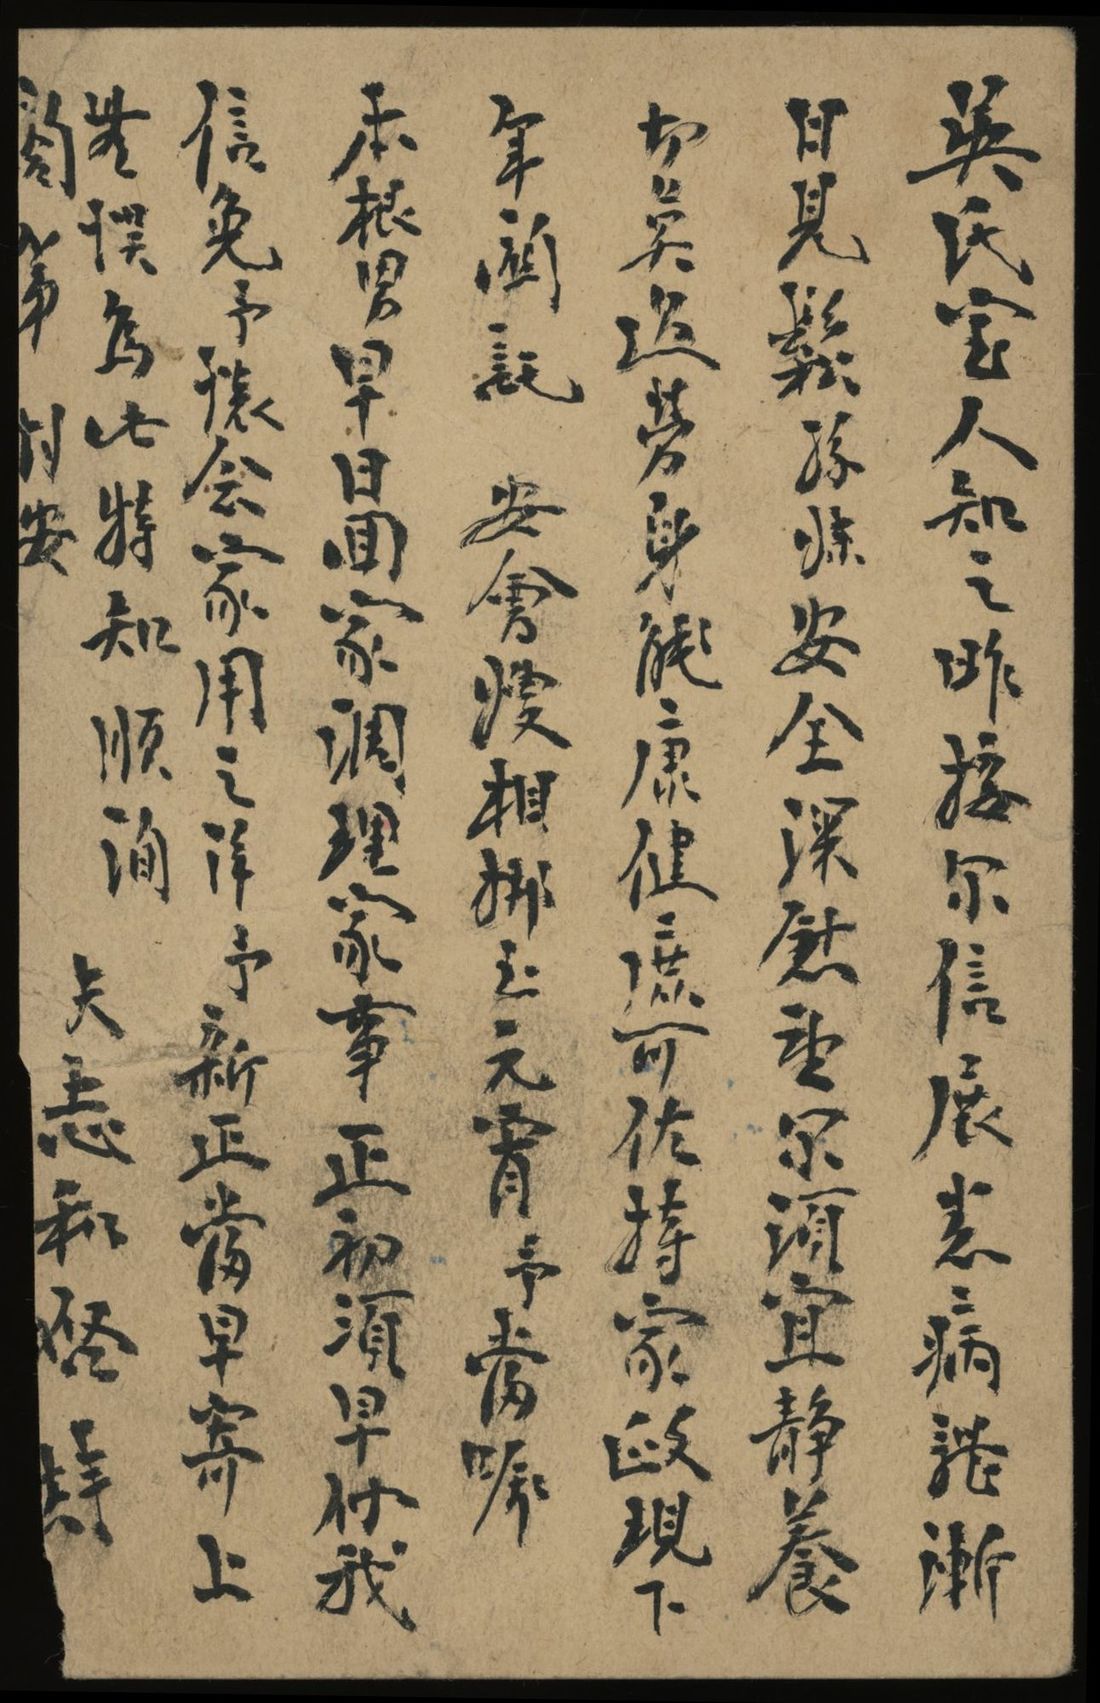 英氏室人知之昨接尔信展悉病諩漸
日見鬆孫媳安全深慰至尔須宜静養
切莫过勞身體康健庶可佐持家政現下
年關託 安會瘦相挪至元宵予當嘱
本根男早日回家調理家事正初須早付我
信免予懷念家用之洋予新正當早寄上
無悞爲此特知順洵
夫志和
付安